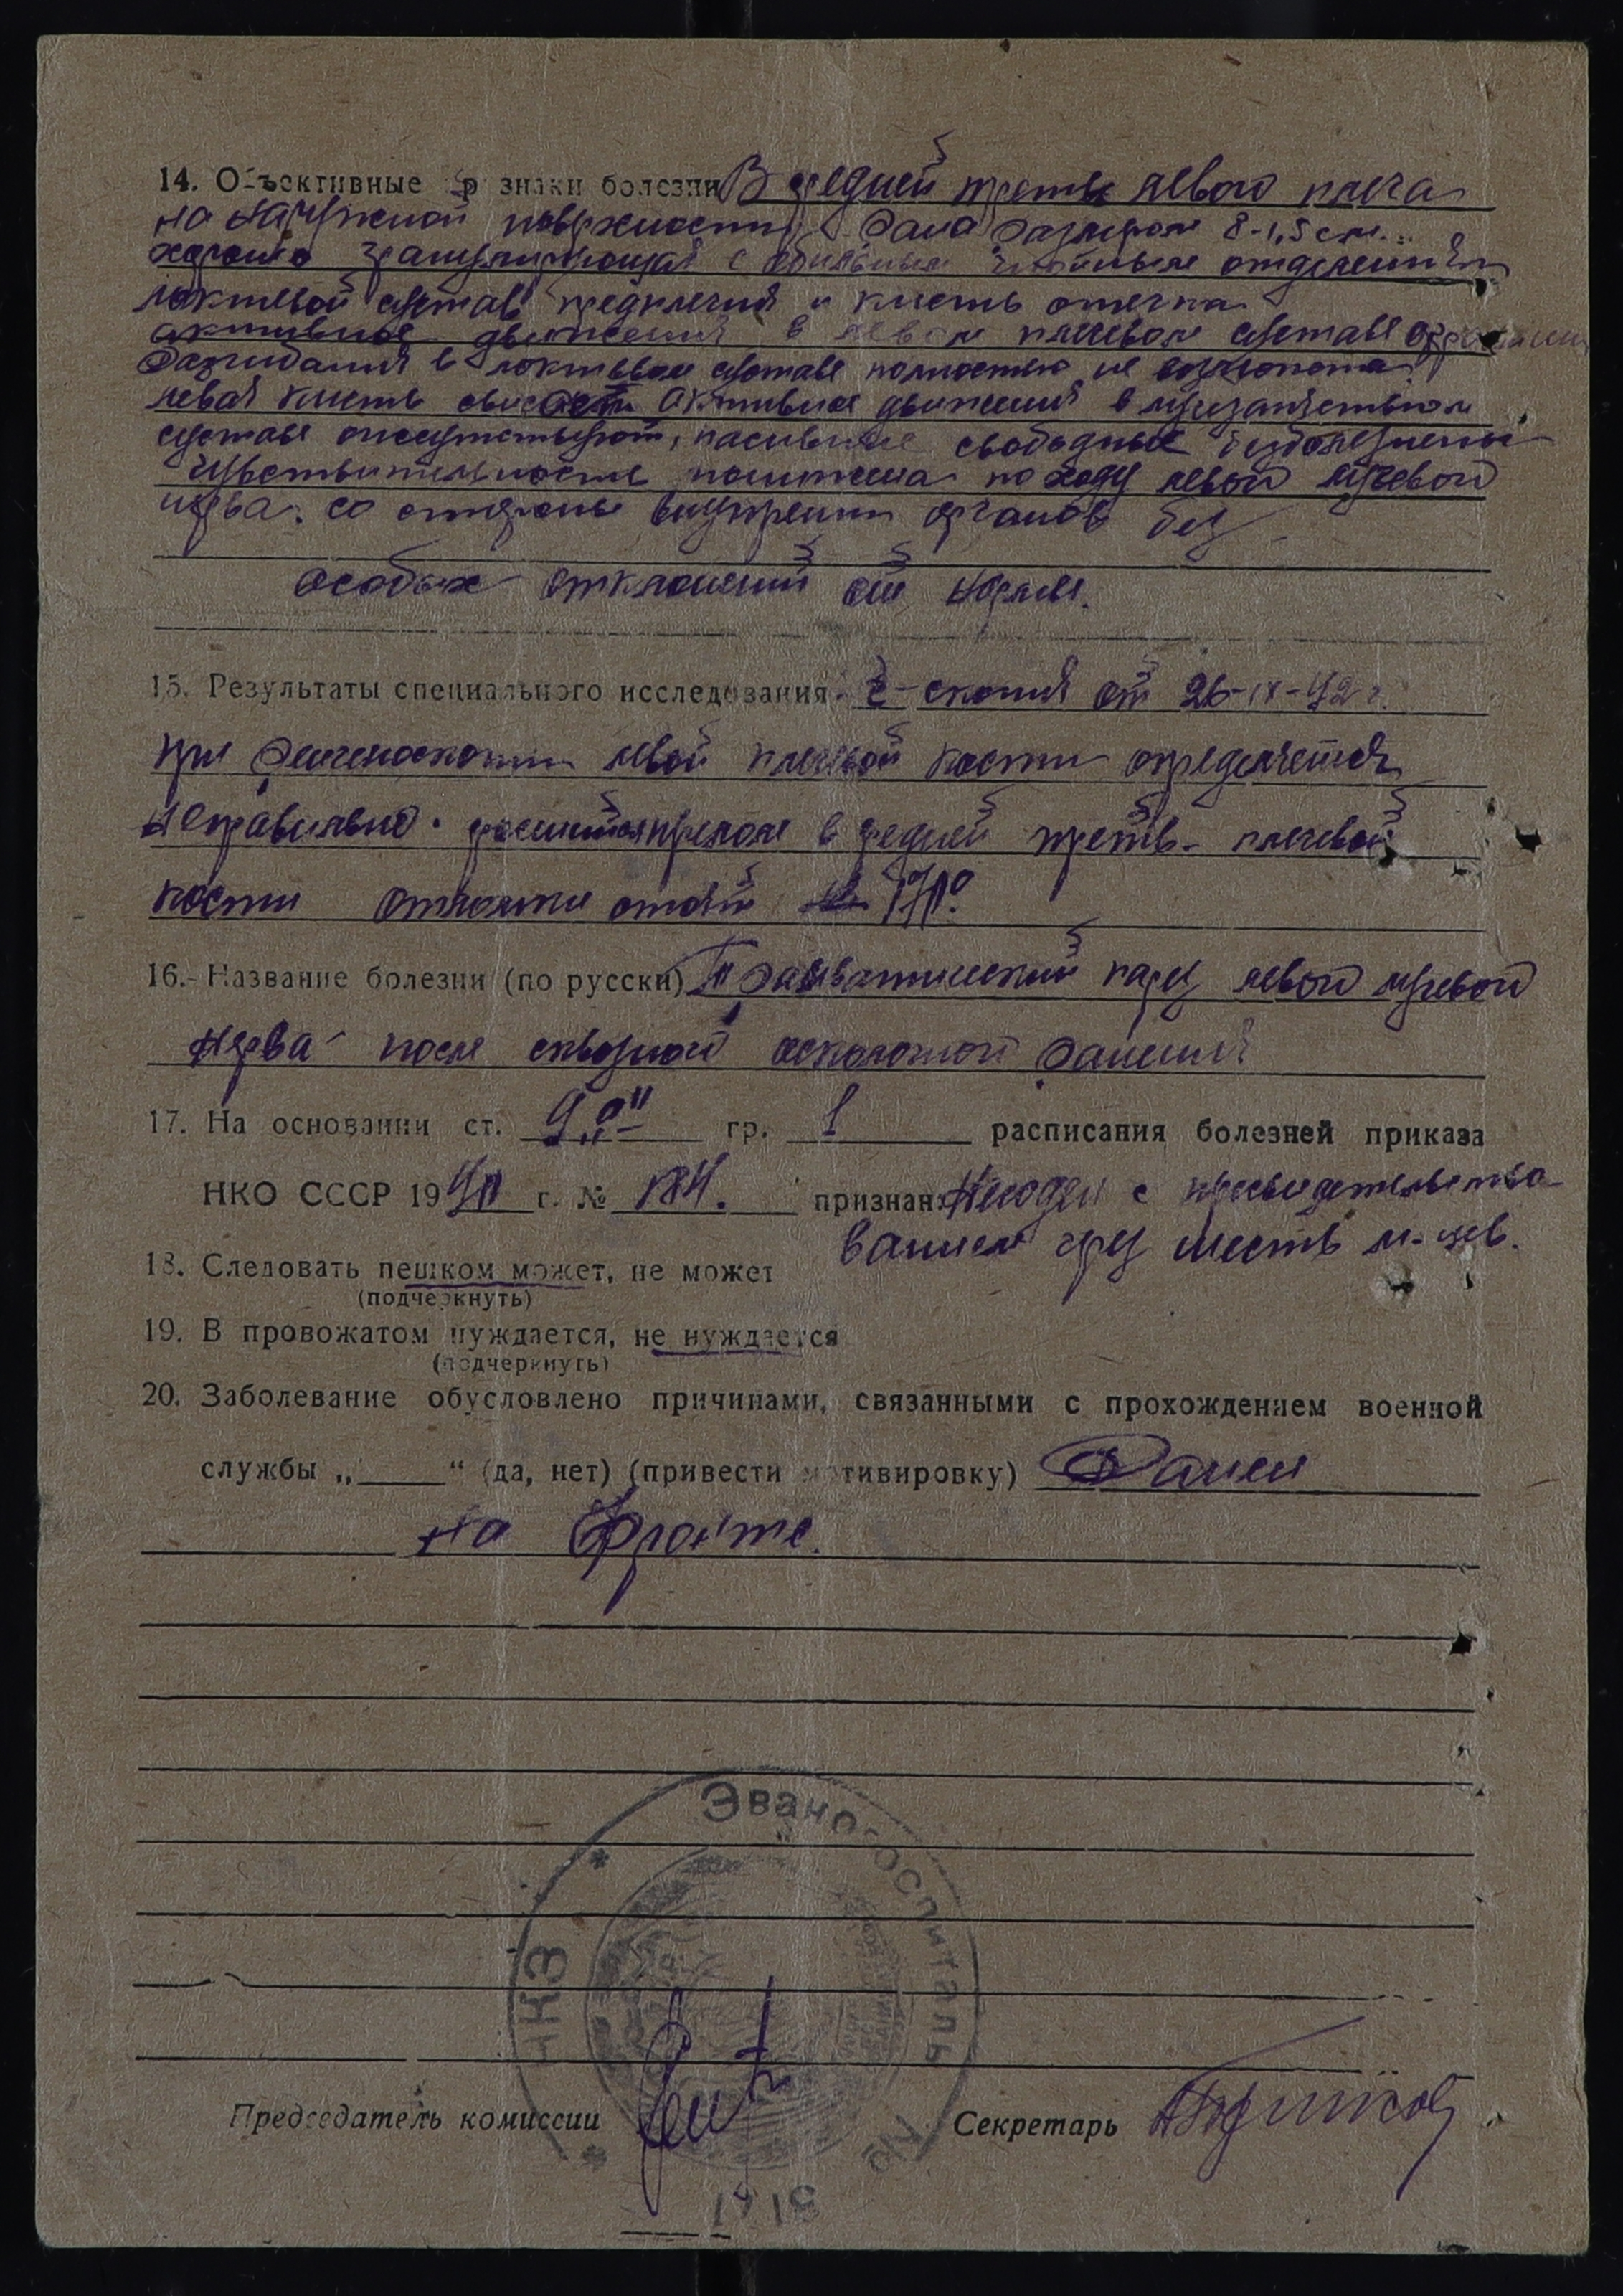 14. Объективные признаки болезни В средней трети левого плеча
на наружной поверхности рана размером 8-1,5 см.
хорошо гранулирующая с обильным гнойным отделением
локтевой сустав предплечия и кисть отечна
активные движения в левом плечевом суставе
Разгибания в локтевом суставе полностью не возможно
левая кисть свисает активные движения в лучезапястном
суставе отсутствуют, пасивные свободные безболезнены
чувствительность понижена по ходу левой лучевой
нерва. со стороны внутренни органов без
особых отклонений от нормы.
15. Результаты специального исследования R-скопия от 26-IX-42 г.
при ренгеноскопии левой плечевой кости определяется
неправильно сросшийся перелом в средней треть плечевой
кости отломки
16. Название болезни (по русски) Травматический парез левой лучевой
нерва после сквозного осколочной ранения
17. На основании ст. 9 „а" гр. 1 расписания болезней приказа
НКО СССР 1940 г. № 184. признан: Негоден с пересвидетельство-
ванием чрез шесть м-цев.
18. Следовать пешком может, не может
(подчеркнуть)
19. В провожатом нуждается, не нуждается
(подчеркнуть)
20. Заболевание обусловлено причинами, связанными с прохождением военной
службы „____“ (да, нет) (привести мотивировку) Ранен
на фронте.
Эвакогоспиталь
НКЗ
№
Председатель комиссии Секретарь